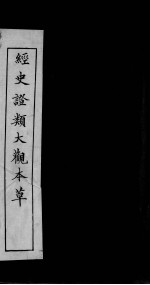 經史證類大觀本草